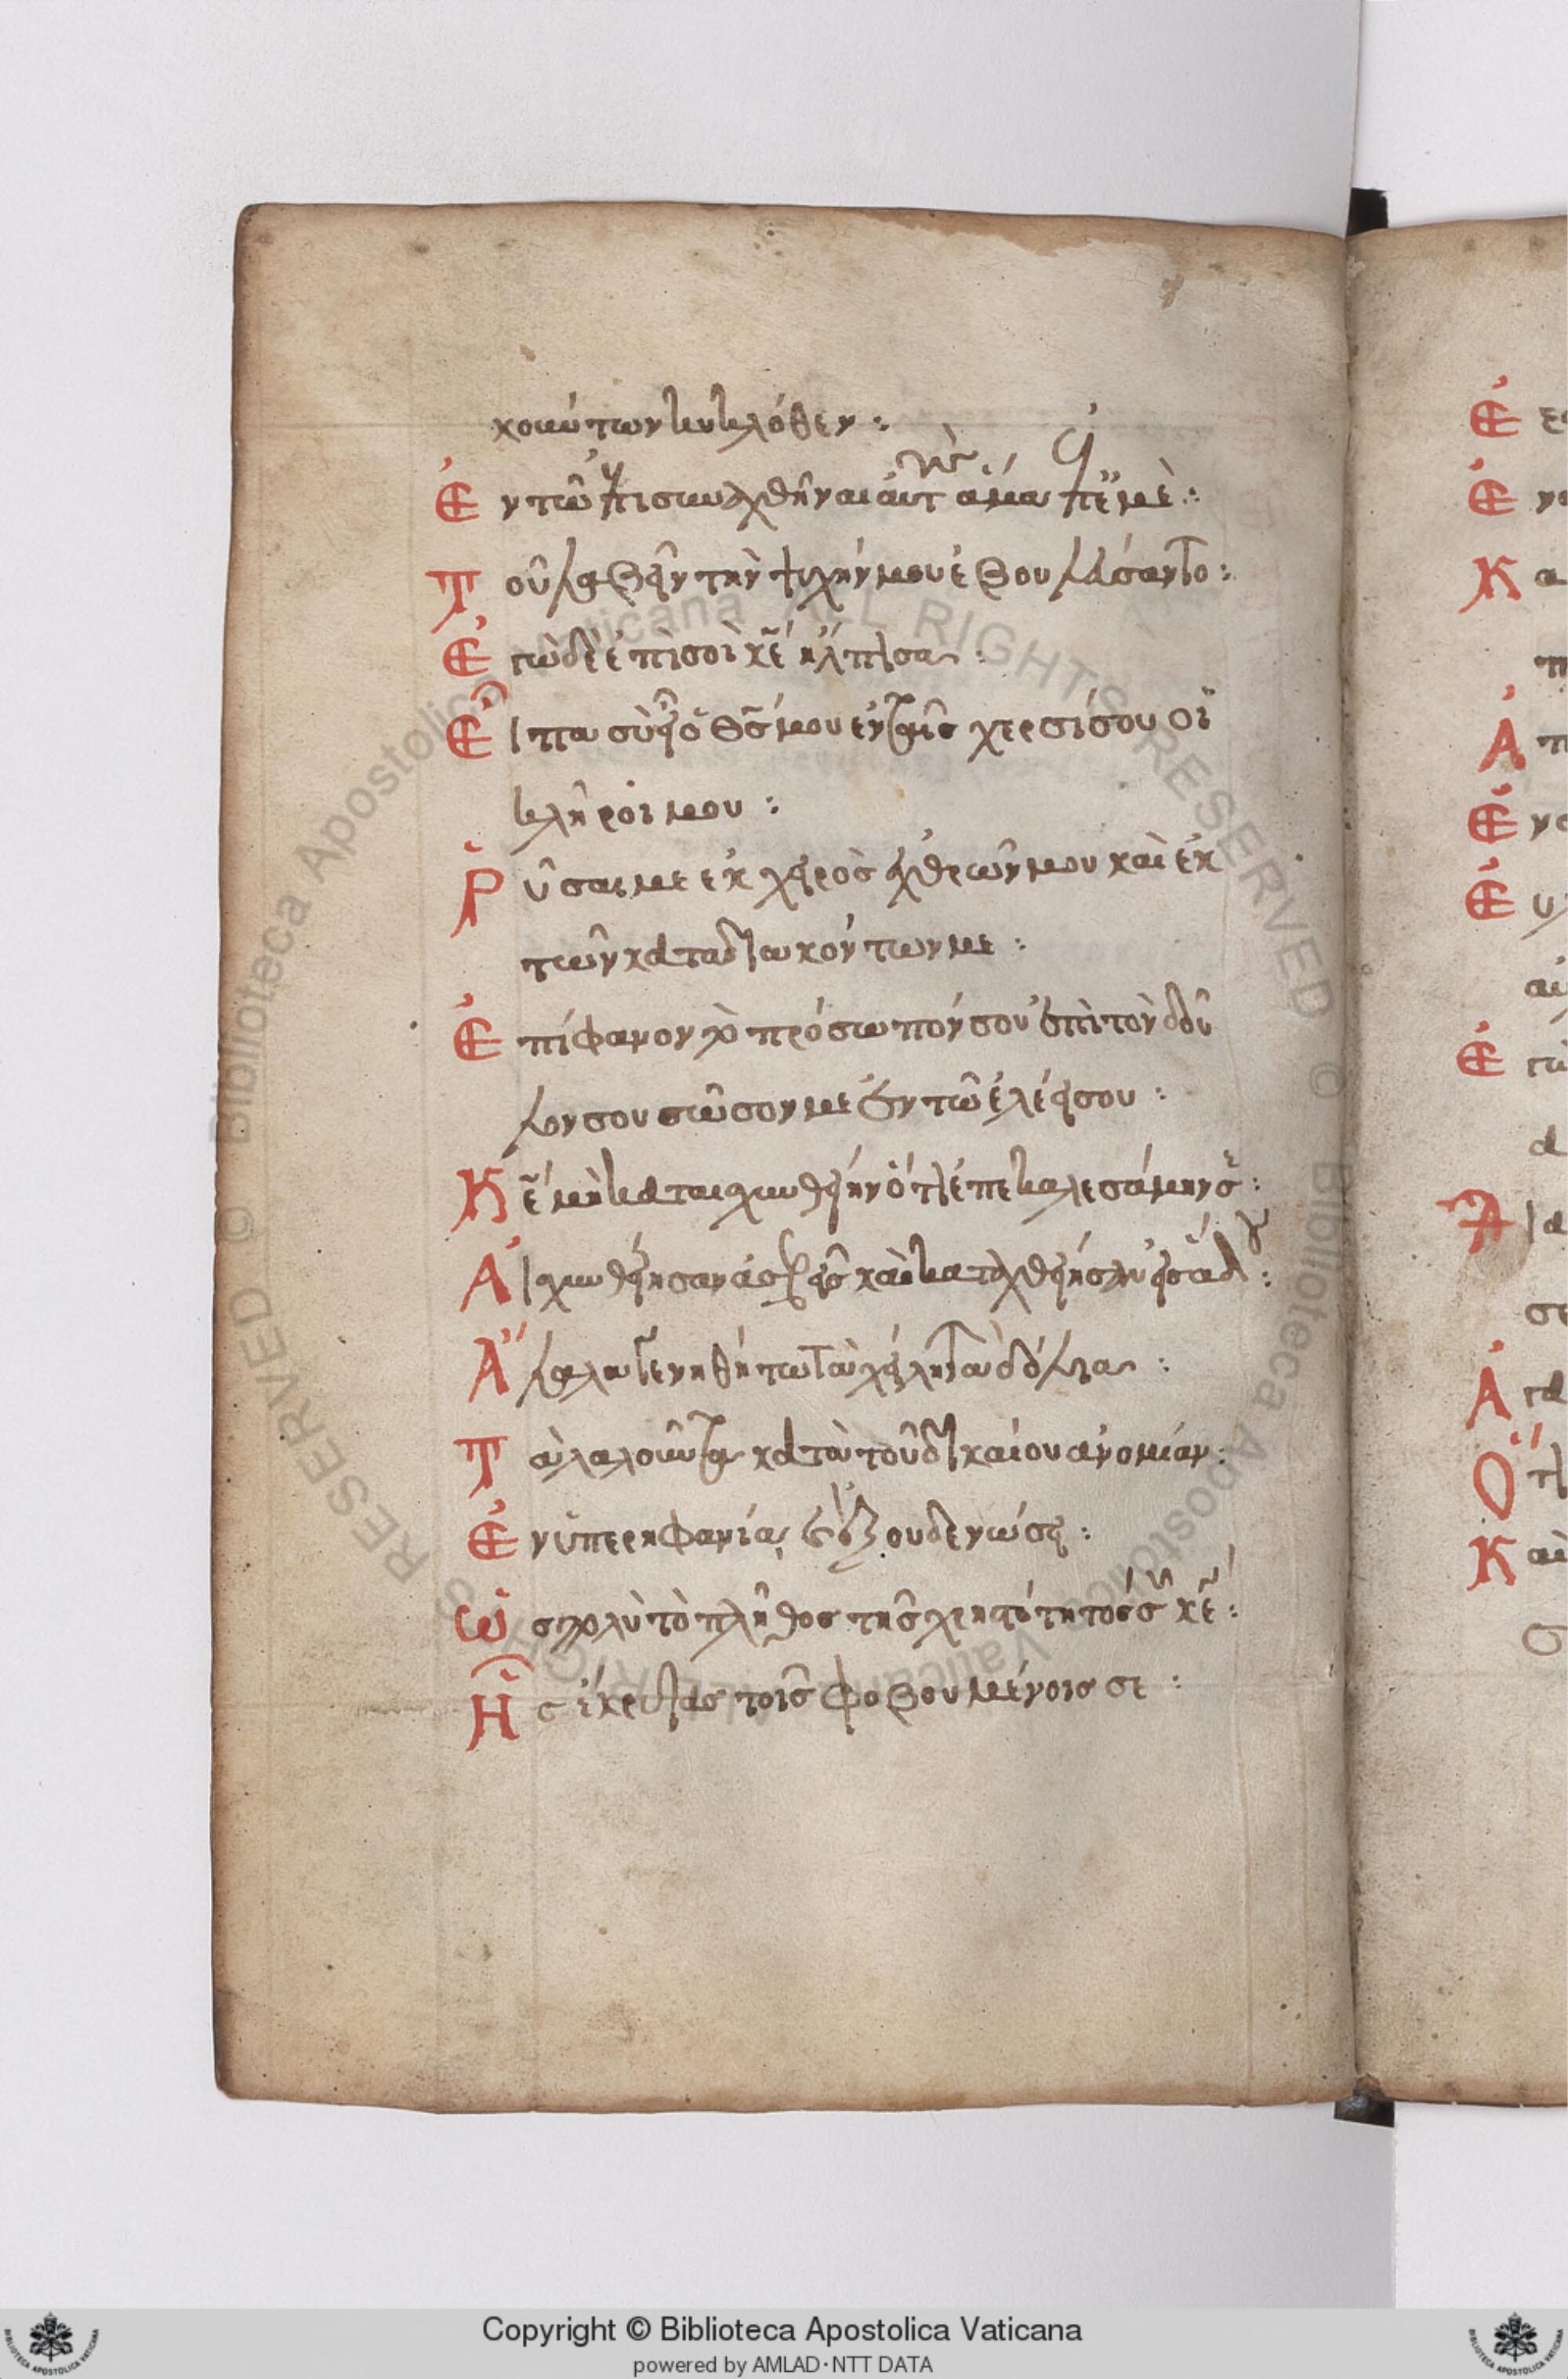 χούντων κυκλόθεν :
Ἐν τῶ ἐπισυναχθῆναι αὐτ ἅμα ἐπ ἐμὲ :
Τοῦ λαβεῖν τὴν ψυχήν μου ἐβουλεύσαντο :
Ἐγὼ δὲ ἐπὶ σοὶ κε̄ ἤλπισα :
Εἶπα σὺ εἶ ὁ θς̄ μου ἐν ταῖς χερσί σου οἱ
κλῆροί μου :
Ῥῦσαι με ἐκ χειρὸς ἐχθρῶν μου καὶ ἐκ
τῶν καταδιωκόντων με :
Ἐπίφανον τὸ πρόσωπόν σου ἐπὶ τὸν δοῦ
λον σου σῶσον με ἐν τῶ ἐλέει σου :
Κε̄ μὴ καταισχυνθείην ὅτι ἐπεκαλεσάμην σε :
Αἰσχυνθείησαν ἀσεβεῖς καὶ καταχθείησαν εἰς ἅδου :
Ἄλαλα γενηθήτω τὰ χείλη τὰ δόλια :
Τὰ λαλοῦντα κατὰ τοῦ δικαίου ἀνομίαν :
Ἐν ὑπερηφανία καὶ ἐξουδενώσει :
Ὡς πολὺ τὸ πλῆθος τῆς χρηστότητός σου κε̄ :
Ἧς ἔκρυψας τοῖς φοβουμένοις σε :
Copyright © Biblioteca Apostolica Vaticana
powered by AMLAD·NTT DATA